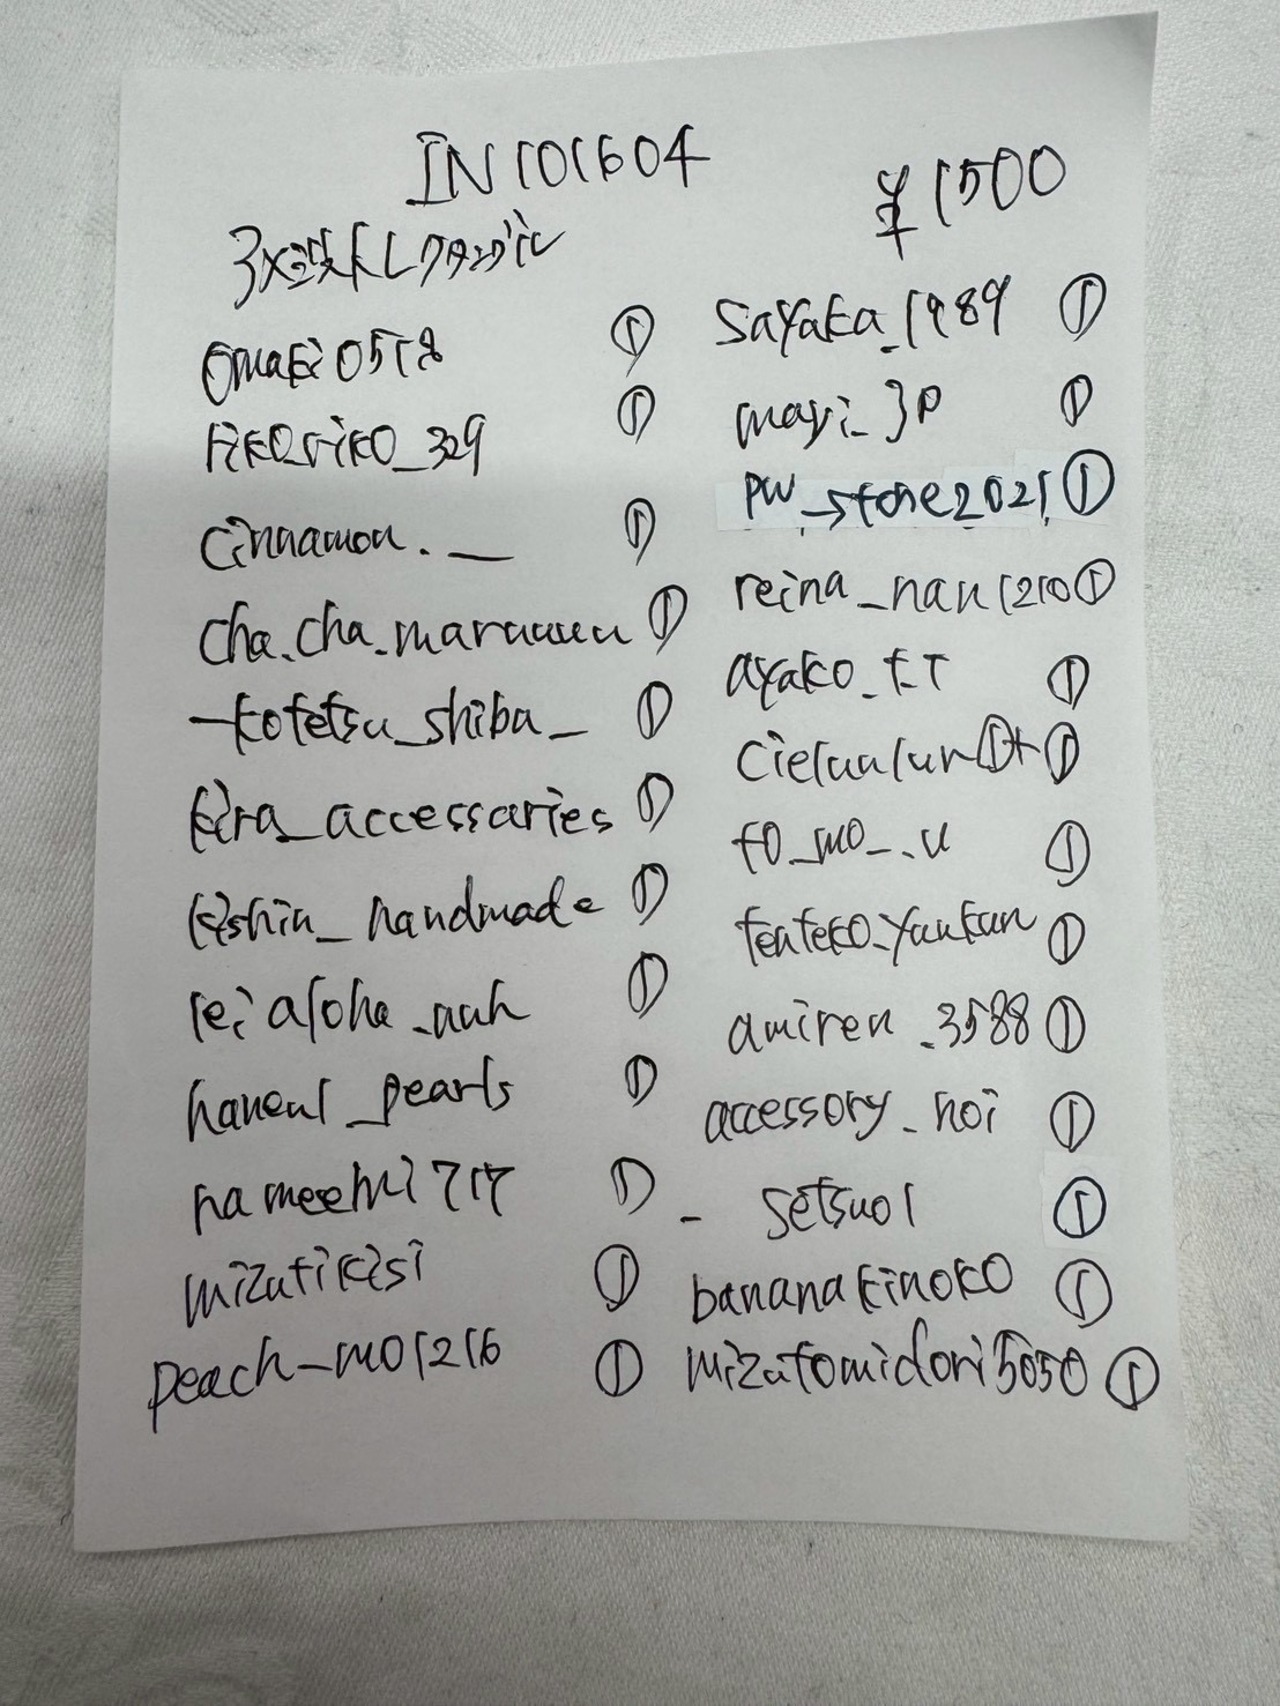 IN101604
¥1500
omaki0518 ①
rikoriko_329 ①
cinnamon.__ ①
cha.cha.maruuuu ①
_kotetsu_shiba_ ①
kira_accessaries ①
kishin_handmade ①
leialoha_nuh ①
haneul_pearls ①
nameemi717 ①
mizutikisi ①
peach_mo1216 ①
sayaka_1989 ①
mayi_JP ①
PW_store2021 ①
reina_nan1210 ①
ayako_k.T ①
①+①
to_mo_.u ①
tenteko_yankun ①
amiren_3588 ①
accessory_noi ①
_setsuo1 ①
bananakinoko ①
mizutomidori5050 ①